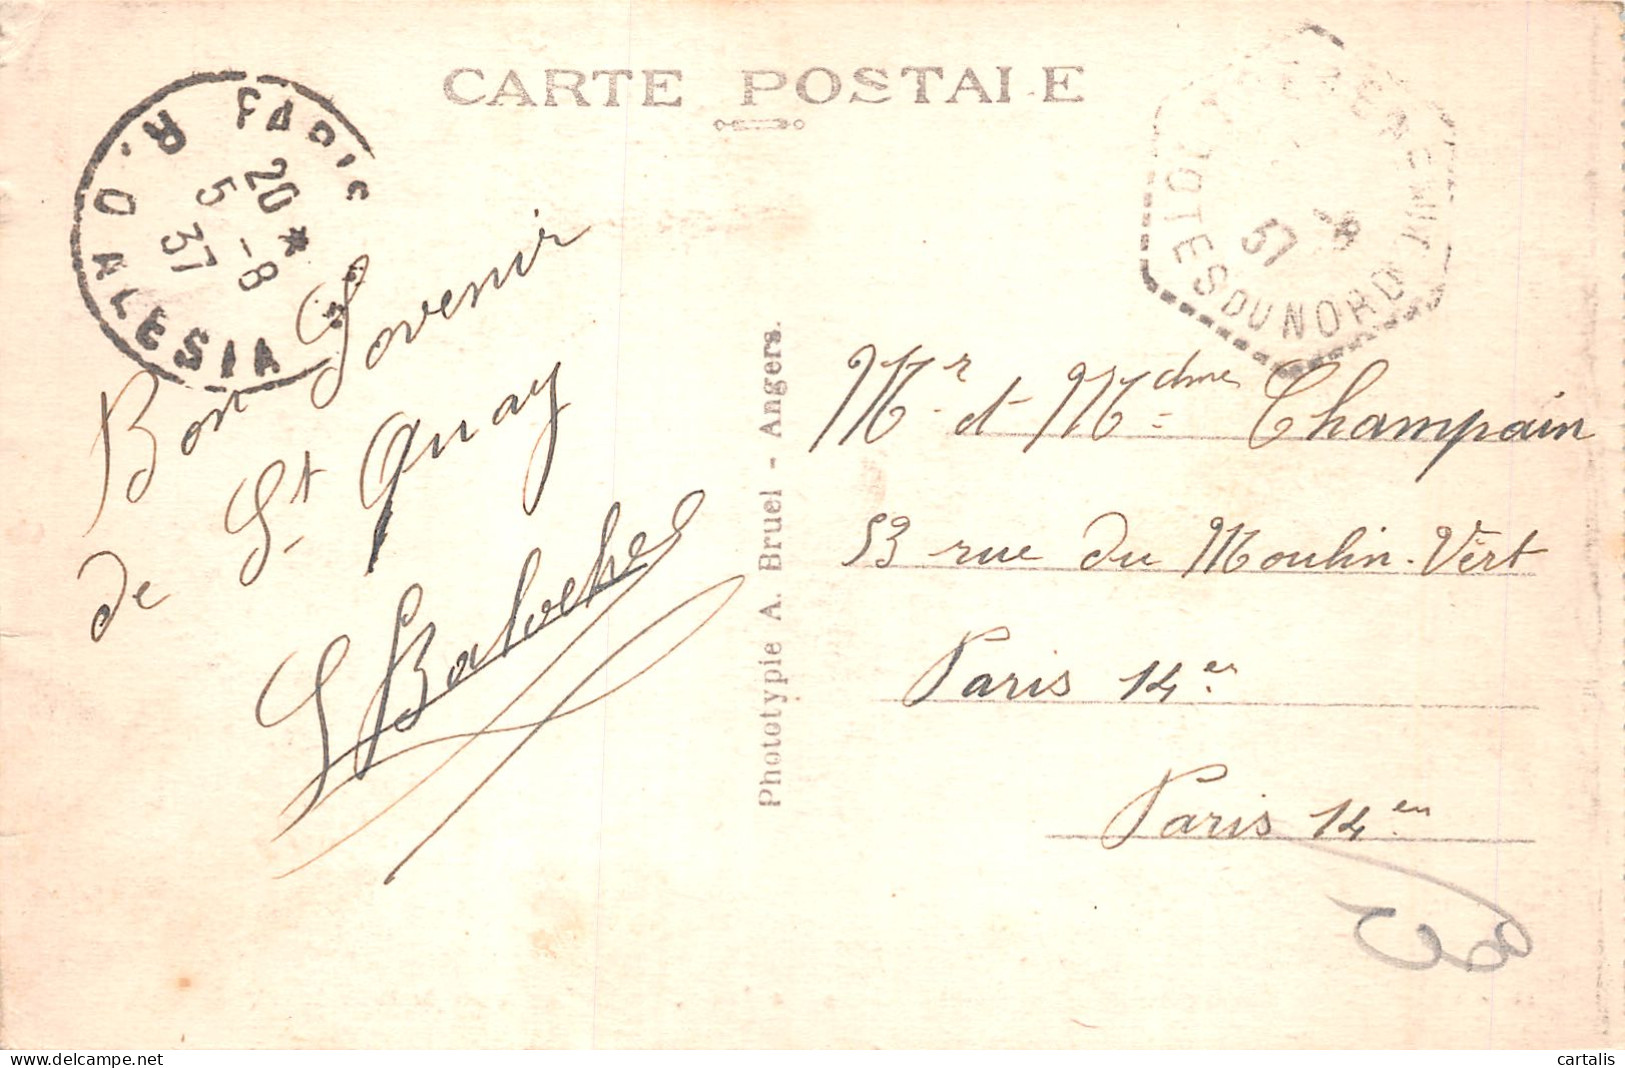 CARTE POSTALE
PARIS
R. D ALESIA
20 *
5 -8
37
COTES DU NORD
-8
37
Bon Sovenir
de St Quay
Phototypie A. Bruel - Angers.
Mr et Mdme Champain
53 rue du Moulin-Vert
Paris 14er
Paris 14en
www.delcampe.net
cartalis